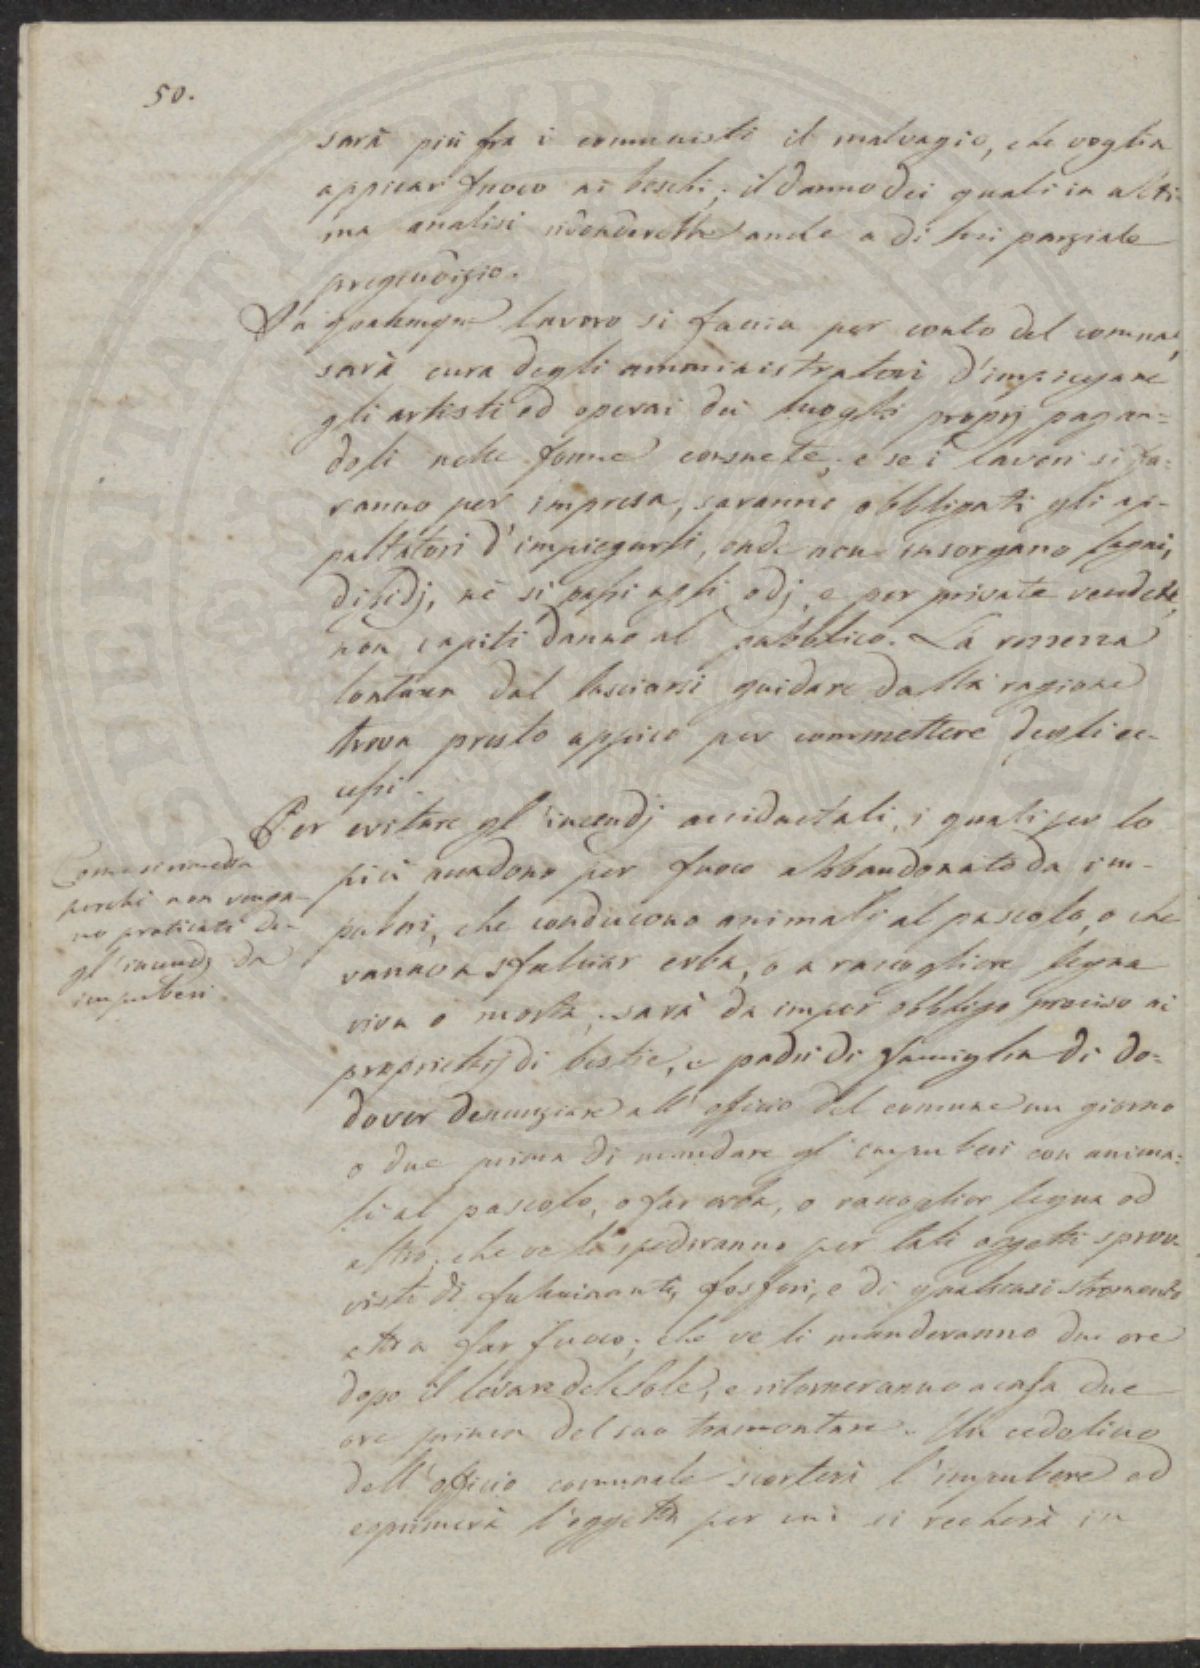 50.
sarà più fra i comunisti il malvagio, che voglia
appicar fuoco ai boschi; il danno dei quali in ulti-
ma analisi ridonderebbe anche a di lui parziale
pregiudizio.
In qualunque lavoro si faccia per conto del comune,
sarà cura degli amministratori d'impiegare
gli artisti ed operai dei luoghi proprj pagan=
doli nelle forme consuete; e se i lavori si fa=
ranno per impresa, saranno obbligati gli ap-
paltatori d'impiegarli, onde non insorgano lagni,
disidj, nè si passi agli odj, e per private vendette,
non capiti danno al pubblico. La rozzezza
lontana dal lasciarsi guidare dalla ragione
trova presto appico per commettere degli ec-
cessi.
Per evitare gl'incendj accidentali, i quali per lo
più accadono per fuoco abbandonato da im-
puberi, che conducono animali al pascolo, o che
vanno a sfalciar erba, o a raccogliere legna
viva o morta; sarà da impor obbligo preciso ai
proprietarj di bestie, e padri di famiglia di do=
dover denunziare all'officio del comune un giorno
o due prima di mandare gl'impuberi con anima=
li al pascolo, o far erba, o raccoglier legna od
altro; che ve li spediranno per tali oggetti sprov
visti di fulminanti, fosfori, e di qualsiasi stromento
atto a far fuoco; che ve li manderanno due ore
dopo il levare del Sole, e ritorneranno a casa due
ore prima del suo tramontare. Un cedolino
dell'officio comunale scorterà l'impubere ed
esprimerà l'oggetto per cui si recherà in
Come si provveda
perchè non venga-
no praticati de-
gl'incendj da
impuberi